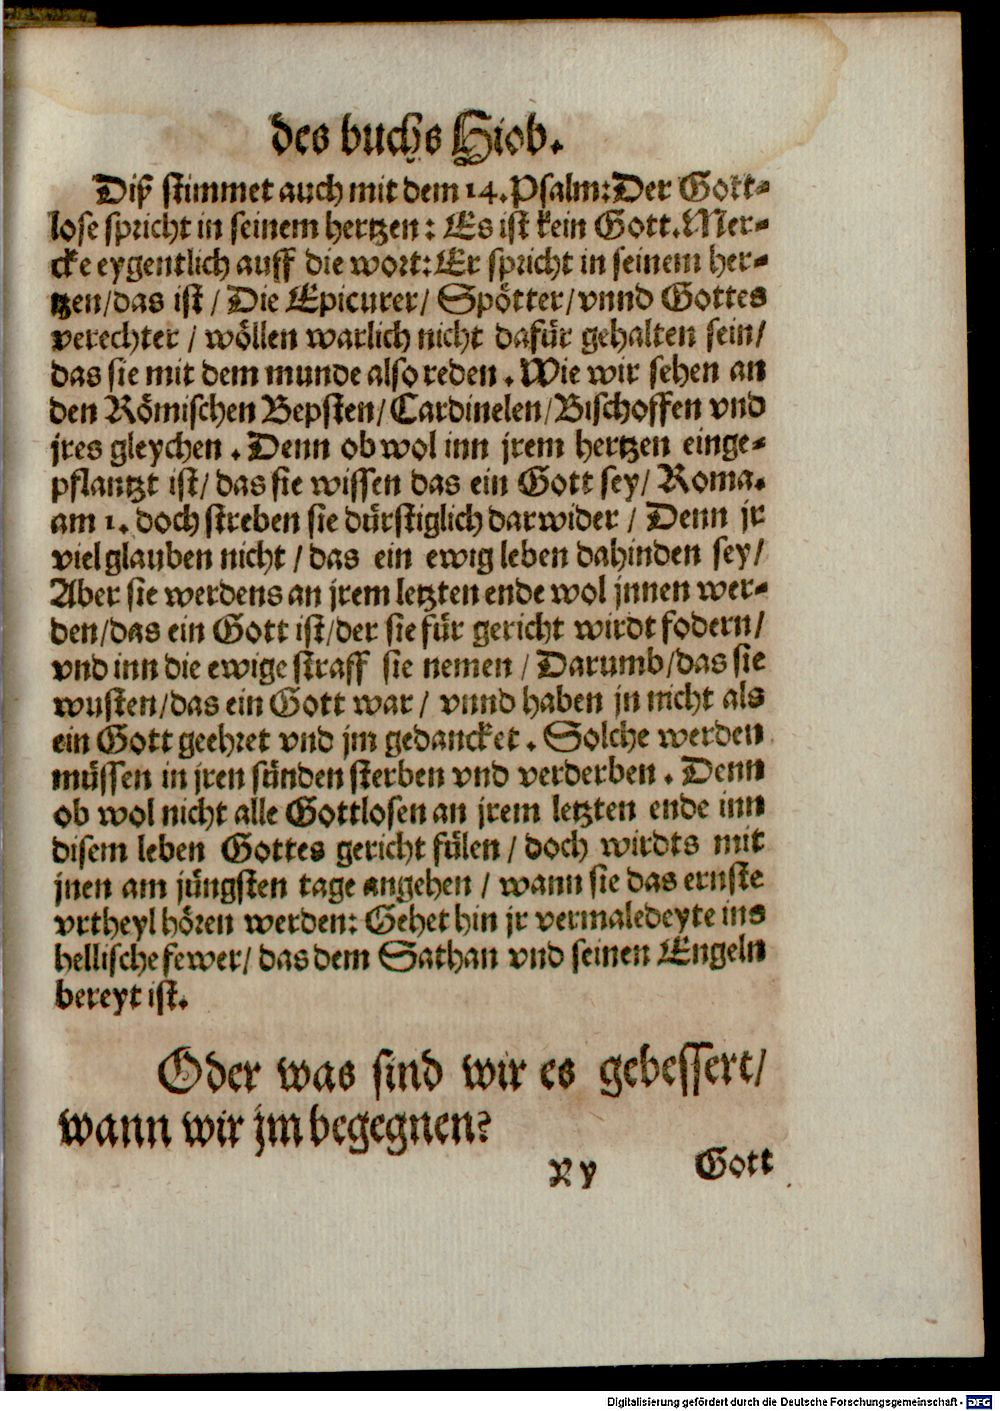 des buchs Hiob.
Diß stimmet auch mit dem 14. Psalm: Der Gott-
lose spricht in seinem hertzen: Es ist kein Gott. Mer-
cke eygentlich auff die wort: Er spricht in seinem her-
tzen/das ist/ Die Epicurer/ Spötter/vnnd Gottes
verechter/ wöllen warlich nicht dafür gehalten sein/
das sie mit dem munde also reden. Wie wir sehen an
den Römischen Bepsten/ Cardinelen/ Bischoffen vnd
jres gleychen. Denn ob wol inn jrem hertzen einge-
pflantzt ist/ das sie wissen das ein Gott sey/ Roma.
am 1. doch streben sie dürstiglich darwider/ Denn jr
viel glauben nicht/ das ein ewig leben dahinden sey/
Aber sie werdens an jrem letzten ende wol jnnen wer-
den/das ein Gott ist/der sie für gericht wirdt fodern/
vnd inn die ewige straff sie nemen/ Darumb/das sie
wusten/das ein Gott war/ vnnd haben jn nicht als
ein Gott geehret vnd jm gedancket. Solche werden
müssen in jren sünden sterben vnd verderben. Denn
ob wol nicht alle Gottlosen an jrem letzten ende inn
disem leben Gottes gericht fülen/ doch wirdts mit
jnen am jüngsten tage angehen/ wann sie das ernste
vrtheyl hören werden: Gehet hin jr vermaledeyte ins
hellische fewer/ das dem Sathan vnd seinen Engeln
bereyt ist.
Oder was sind wir es gebessert/
wann wir jm begegnen?
X y Gott
Digitalisierung gefördert durch die Deutsche Forschungsgemeinschaft - DFG